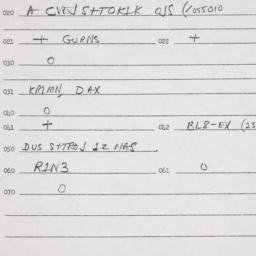 020 A CVEJ STTOKLK OJS (1055010
021 + GURNS 022 +
030 O
031 KRIMN, DAX
040 O
041 + 042 BL8-EX (23
050 DUS STTPOJ 12 NAS.
060 R1N3 061 O
070 O